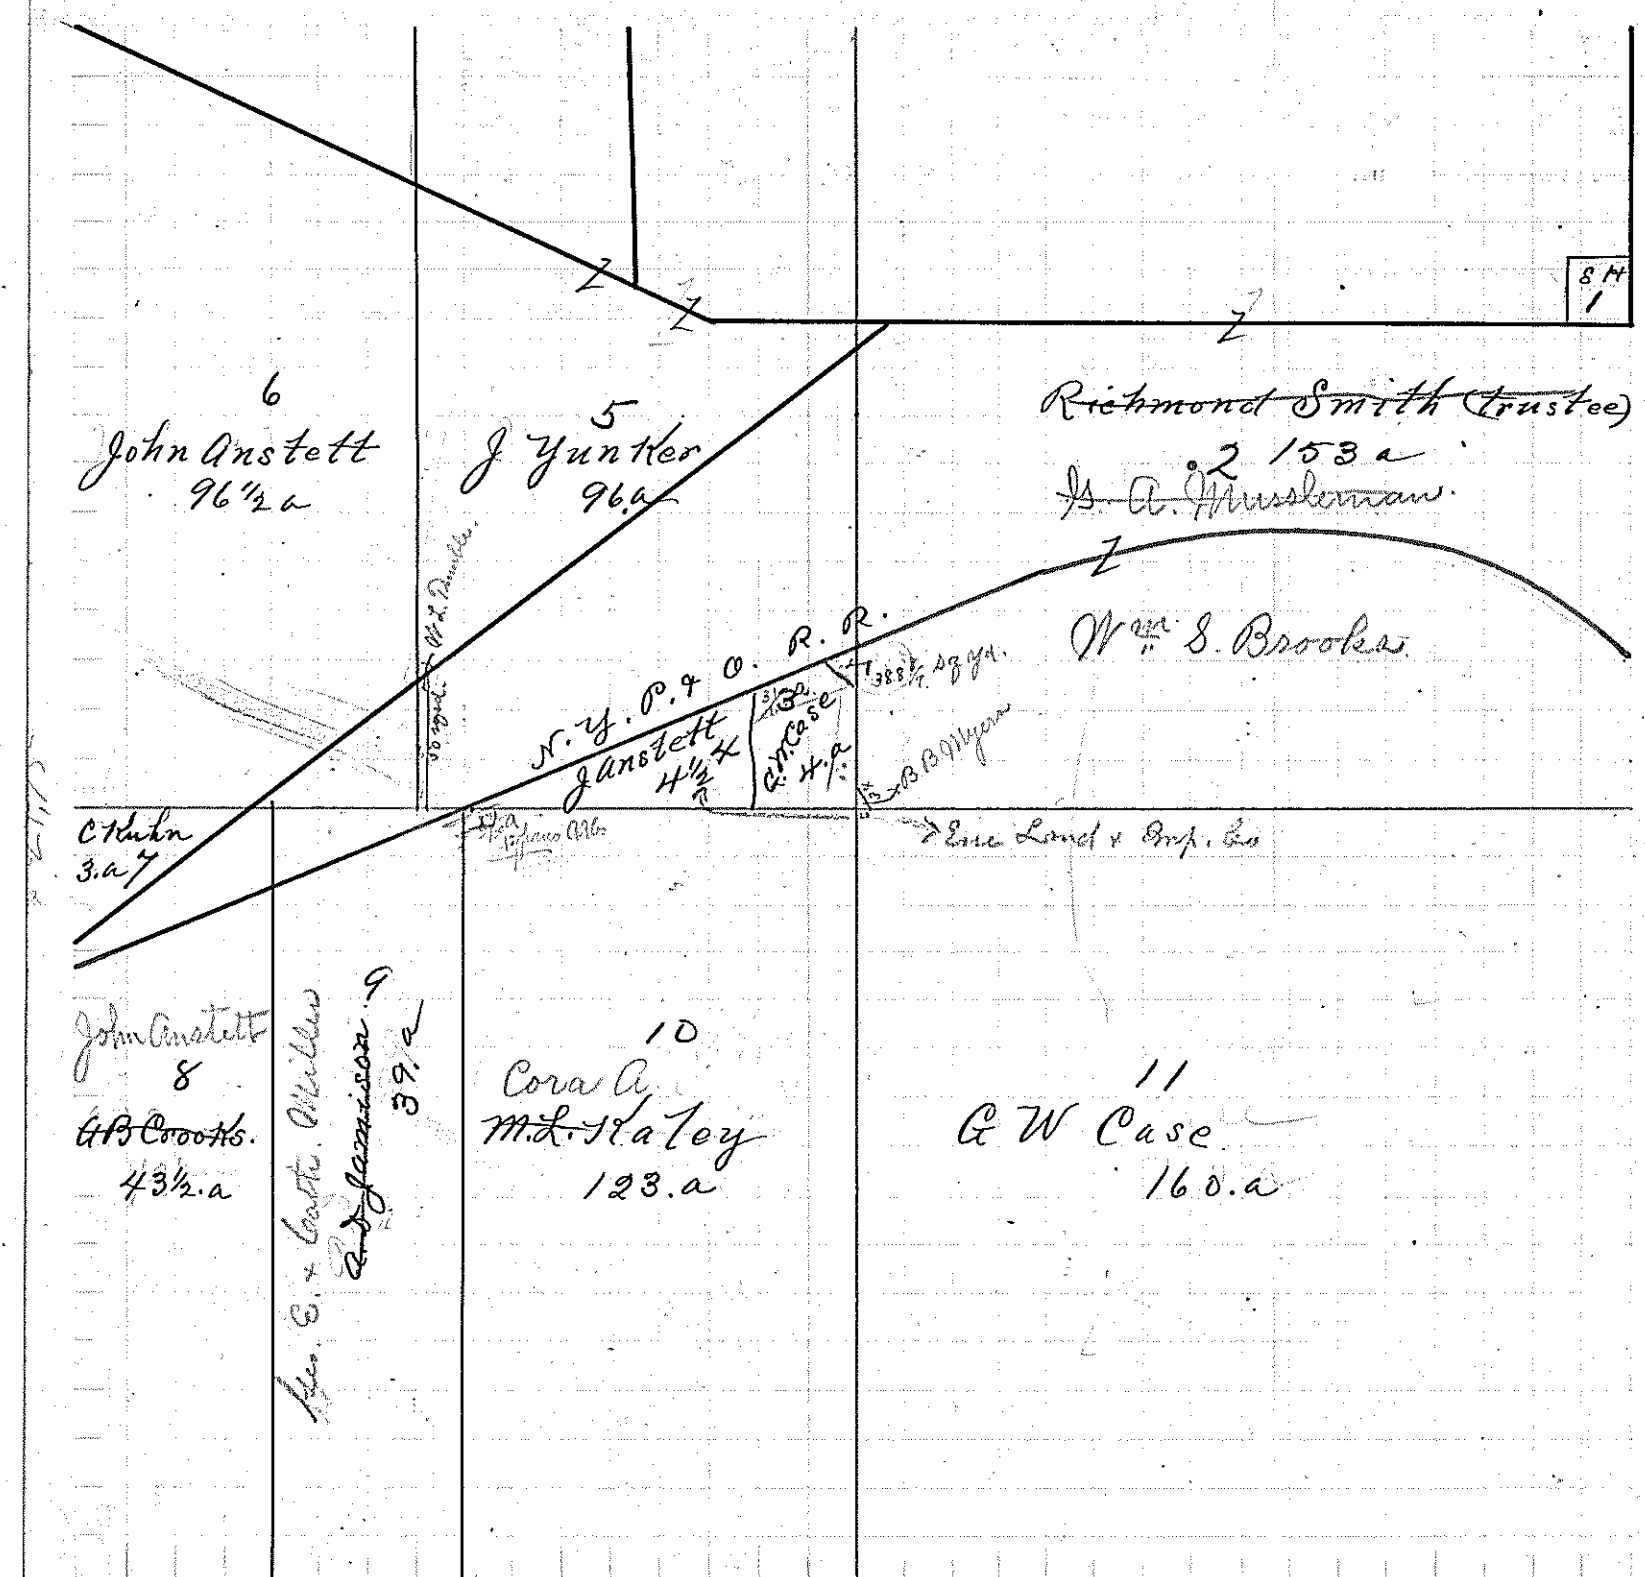 S H
1
6
John Anstett
96 1/2 a
5
J Yunker
96.a
Richmond Smith (trustee)
.2 153 a
G. A. Mussleman.
Wm S. Brooks.
N. Y. P. & O. R. R.
J Anstett
4 1/2 4
3a
G.W. Case
4.a
388 8/9 sq yd.
B B Myers
Erie Land & Imp. Co
C Kuhn
3.a 7
John Anstett
8
A B Crooks.
43 1/2.a
Geo. E. + Cath. Miller
Jamison. 9
39.a
10
Cora A.
M.L. Kaley
123.a
11
G W Case
160.a